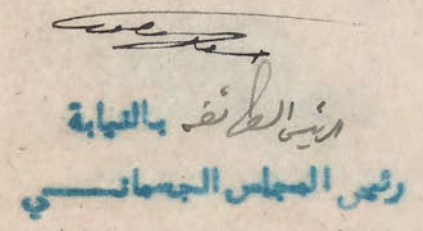 رئيس الطائفه بالنيابة
رئيس المجلس الجسماني